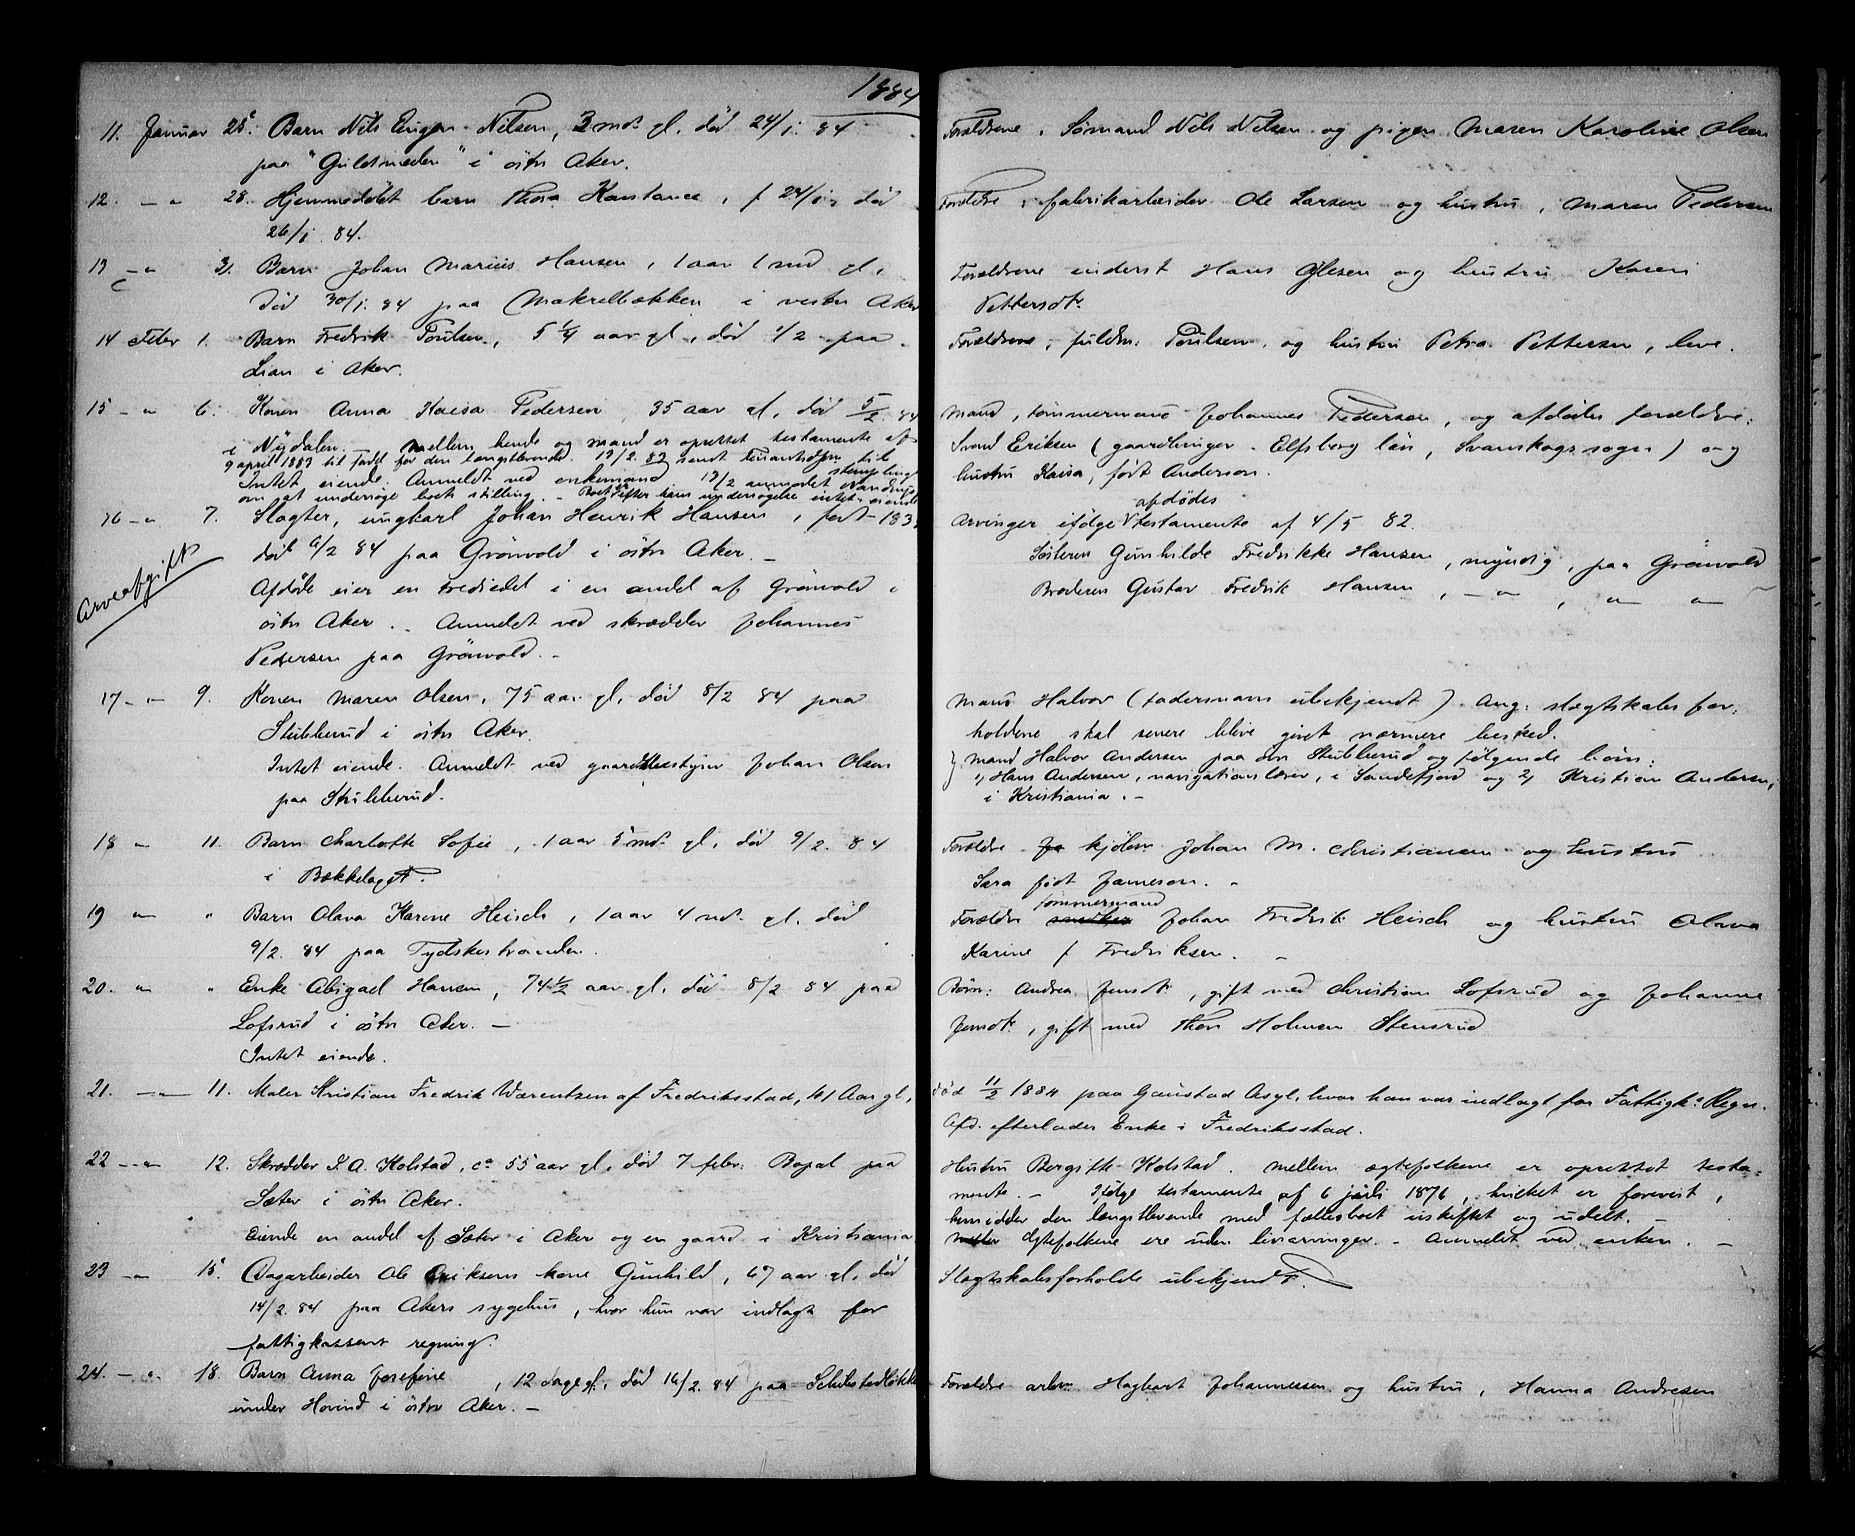 1884
11. Januar 28. Barn Nils Eugen Nilsen, 3 md. gl. død 24/1. 84
paa "Guldsmeden" i östre Aker.
Forældrene, Sömand Nils Nilsen og pigen Maren Karoline Olsen
12. — " 28. Hjemmedöbt barn Thora Konstance, f 24/1, død
26/1. 84.
Forældre, fabrikarbeider Ole Larsen og hustru, Maren Pedersen
13 — " 31. Barn Johan Marius Hansen, 1 aar 1 md gl.
död 30/1. 84 paa Makrelbækken i vestre Aker
Forældrene inderst Hans Olesen og hustru Karen
Pettersdtr
14 Febr 1. Barn Fredrik Poulsen, 5 1/4 aar gl, död 1/2 paa
Lian i Aker.
Forældrene, fuldm: Poulsen, og hustru Petra Pettersen, leve.
15 — " 6. Konen Anna Kaisa Pedersen, 35 aar gl, död 5/2 84
i Nydalen. — Mellem hende og mand er oprettet testamente af
9 april 1883 til fordel for den længstlevende. 13/2. 83 sendt til
Intet eiende. Anmeldt ved enkemand 13/2 anmodet
om at undersöge boets stilling. — Boet efter hans undersögelse intet eiende
Mand, tömmermand Johannes Pedersen, og afdödes forældre:
Svend Eriksen (gaardbruger. Elfsborg län, Svanskogs sogn) og
hustru Kaisa, født Anderson.
16 — " 7. Slagter, ungkarl Johan Henrik Hansen, født 183
död 6/2 84 paa Grönvold i östre Aker. —
Arveafgift
Afdöde eier en trediedel i en andel af Grönvold i
östre Aker. . Anmeldt ved skrædder Johannes
Pedersen paa Grönvold. —
afdödes
Arvinger ifölge testamente af 4/5 82.
Söstren Gunhilde Fredrikke Hansen, myndig, paa Grönvold
Broderen Gustav Fredrik Hansen, — " — , " — "
17 — " 9. Konen Maren Olsen, 75 aar gl, död 8/2 84 paa
Stubberud i östre Aker.
Intet eiende. Anmeldt ved gaardbestyrer Johan Olsen
paa Stubberud.
Mand Halvor (fadersnavn ubekjendt). Ang: slægtskabsfor-
holdene skal senere blive givet nærmere besked.
mand Halvor Andersen paa Stubberud og fölgende börn:
1, Hans Andersen, navigationslærer, i Sandefjord og 2, Kristian Andersen,
i Kristiania. —
18 " 11. Barn Charlotte Sofie, 1 aar 5 md. gl. död 9/2. 84
i Bækkelaget.
Forældre kjölner Johan M. Christiansen og hustru
Sara födt Jameson. —
19 " " Barn Olava Karine Heisch, 1 aar 4 md. gl. död
9/2. 84 paa Tydskestranden.
tömmermand
Forældre Johan Fredrik Heisch og hustru Olava
Karine f Fredriksen. —
20. " " Enke Abigael Hansen, 74 1/2 aar gl. död 8/2 84 paa
Lofsrud i östre Aker. —
Intet eiende.
Börn: Andrea Jensdtr, gift med Christian Lofsrud og Johanne
Jensdtr, gift med Thor Holmsen Stensrud
21. — " 11. Maler Kristian Fredrik Wærentzen af Fredriksstad, 41 Aar gl,
död 11/2 1884 paa Gaustad Asyl, hvor han var indlagt for Fattigk.s Regn.
Afd. efterlader Enke i Fredriksstad.
22 — " 12. Skrædder I. A. Kolstad, ca 55 aar gl, död 7 febr: Bopæl paa
Sæter i östre Aker.
Eiende en andel af Sæter i Aker og en gaard i Kristiania
Hustru Bergitte Kolstad. Mellem ægtefolkene er oprettet testa-
mente. — Ifölge testamente af 6 juli 1876, hvilket er forevist,
hensidder den længstlevende med fællesboet uskiftet og udelt. —
Ægtefolkene ere uden livsarvinger. — Anmeldt ved enken. —
23 — " 15. Dagarbeider Ole Eriksens kone Gunhild, 67 aar gl. död
14/2. 84 paa Akers sygehus, hvor hun var indlagt for
fattigkassens regning.
Slægtskabsforholde ubekjendt.
24. — " 18. Barn Anna Josefine, 12 dage gl, död 16/2. 84 paa Schibstedlökken
under Hovind i östre Aker. —
Forældre arb. Hagbart Johannessen og hustru, Hanna Andresen